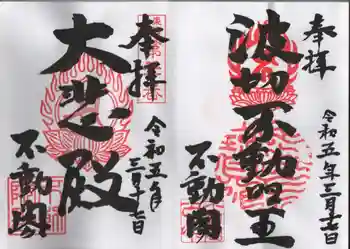 奉拝
令和五年三月十七日
波切不動明王
不動閣
奉拝
令和五年三月十七日
大悲殿
不動閣